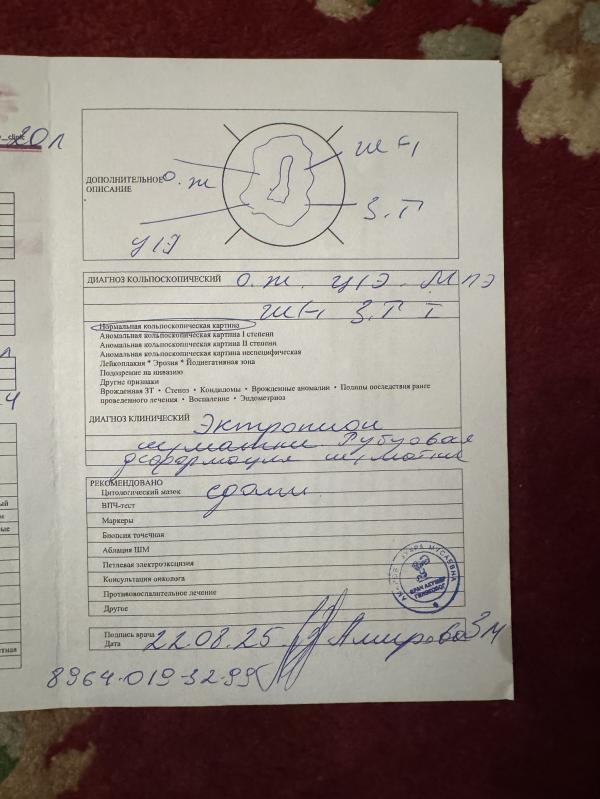 20л
ДОПОЛНИТЕЛЬНОЕ
ОПИСАНИЕ
о.ж
ш(-)
з.Т
цiэ
ДИАГНОЗ КОЛЬПОСКОПИЧЕСКИЙ о.ж. цiэ. Мпэ
ш(-) з.Т I
Нормальная кольпоскопическая картина
Аномальная кольпоскопическая картина I степени
Аномальная кольпоскопическая картина II степени
Аномальная кольпоскопическая картина неспецифическая
Лейкоплакия * Эрозия * Йоднегативная зона
Подозрение на инвазию
Другие признаки
Врожденная ЗТ • Стеноз • Кондиломы • Врожденные аномалии • Полипы последствия ранее
проведенного лечения • Воспаление • Эндометриоз
ДИАГНОЗ КЛИНИЧЕСКИЙ Эктропион
шейки матки Рубцовая
деформация ш/матки
РЕКОМЕНДОВАНО
Цитологический мазок сдали
ВПЧ-тест
Маркеры
Биопсия точечная
Аблация ШМ
Петлевая электроэксцизия
Консультация онколога
Противовоспалительное лечение
Другое
МУСАЕВНА
ВРАЧ АКУШЕР
ГИНЕКОЛОГ
Подпись врача
Дата 22.08.25 Амирова ЗМ
8964-019-32-99